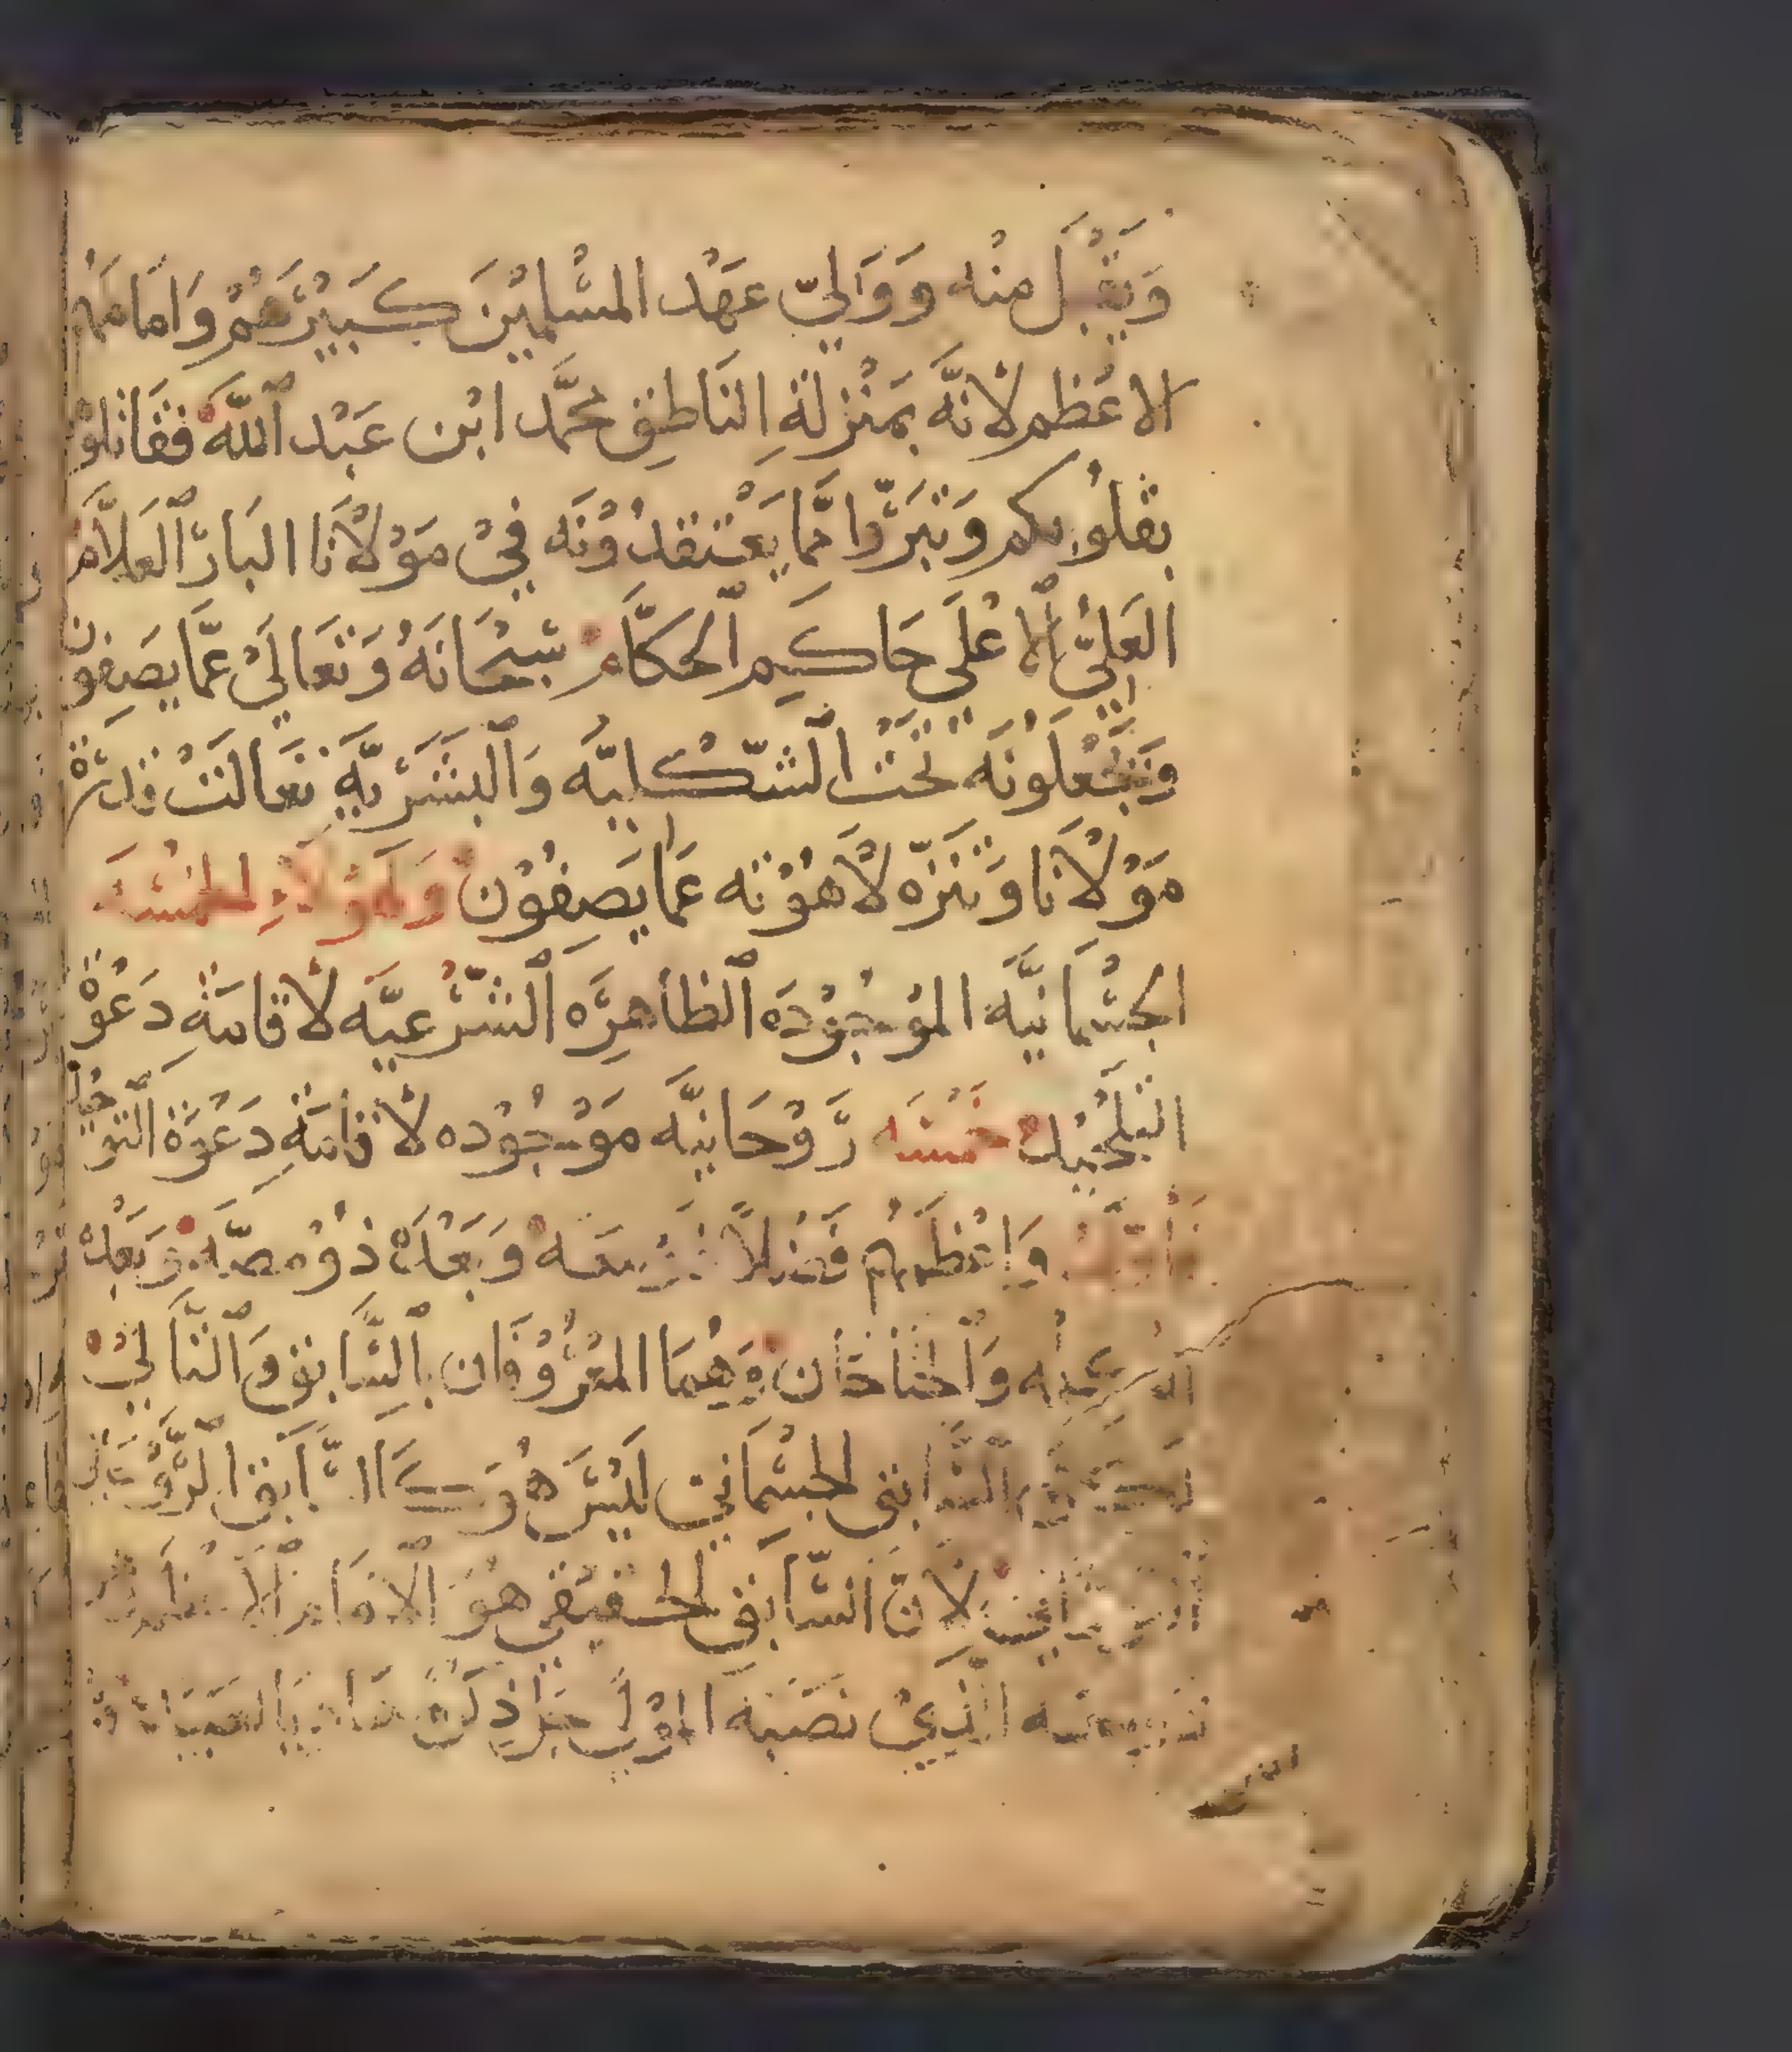 وَيَقْبَل مِنْه وَوَالِيّ عَهْد المسْلِميْنَ كَبيْرَهُمْ وَامَامَهُم
الاعْظم لانّهَ بمَنْزلَةِ النَاطِق محمَّد ابْن عَبْد ٱللّه فقاتلوْا
بقلوُبكم وَتبرَّوا ممَّا يعْتقدُوْنَه فيْ مَوْلَانَا البَارّ ٱلعَلاَّم
العَليّ ٱلاعْلَى حَاكِم ٱلحكَّام سبْحَانَهُ وَتعَالَيْ عمَّا يصَفِون
وَيَجْعلوُنَه تحْت الشّكليَّه وَٱلبشَريَّه تعَالتْ قدْرَة
مَوْلَانا وَتنَزّه لَاهُوْته عَمَّا يَصِفُوْن وَهَؤلاَءِ الخمْسَه
الجسْمانيَّه الموْجُوْدَه ٱلظاهِرَه ٱلشّرْعيَّه لاقامَة دَعْوَة
التلْحيْد خمْسَه رُوْحَانيَّه مَوْجُوْده لاقامَة دَعْوَة ٱلتوْحيْد
وَاعْظمهم فضْلاً شريعَه وَبعْدَهْ ذوْ مصَّه وَبَعْدهْ
وَٱلجنَاحَان وَهُمَا المعْرُوْفان بٱلسَّابق وَٱلتَّاليْ
السَّابق الجسْمَانيْ ليْسَ هُوَ كَالسَّابق ٱلرُّوْحَاني
لانَّ السَّابق الحقيْقي هوَ ٱلامَام ٱلاعْظم
الذيْ نصَبَه الموْليْ جَلّ ذكرهْ